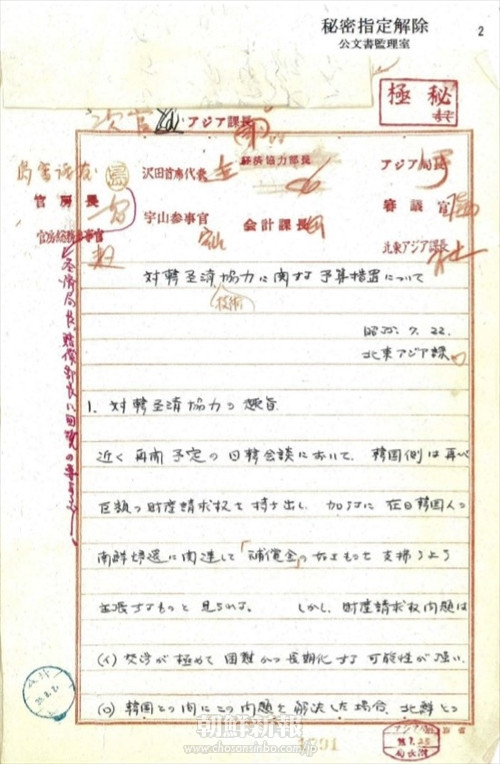 秘密指定解除
公文書監理室
2
極秘
次官
アジア課長
経済協力部長
沢田首席代表
アジア局長
官房長
宇山参事官
会計課長
審議官
官房総務参事官
北東アジア課長
対韓経済協力に関する予算措置について
技術
昭35.7.22.
北東アジア課
1. 対韓経済協力の趣旨
近く再開予定の日韓会談において、韓国側は再び
巨額の財産請求権を持ち出し、加うるに在日韓国人の
南鮮帰還に関連して「補償金」の如きものを支払うよう
主張するものと見られる。しかし、財産請求権問題は
(イ) 交渉が極めて困難かつ長期化する可能性が強い、
(ロ) 韓国との間にこの問題を解決した場合、北鮮との
朝鮮新報
www.chosonsinbo.com